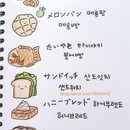 メロンパン 메론팡
메론빵
たいやき 타이야키
붕어빵
サンドイッチ 산도잇치
샌드위치
ハニーブレッド 하니부렛도
허니브레드